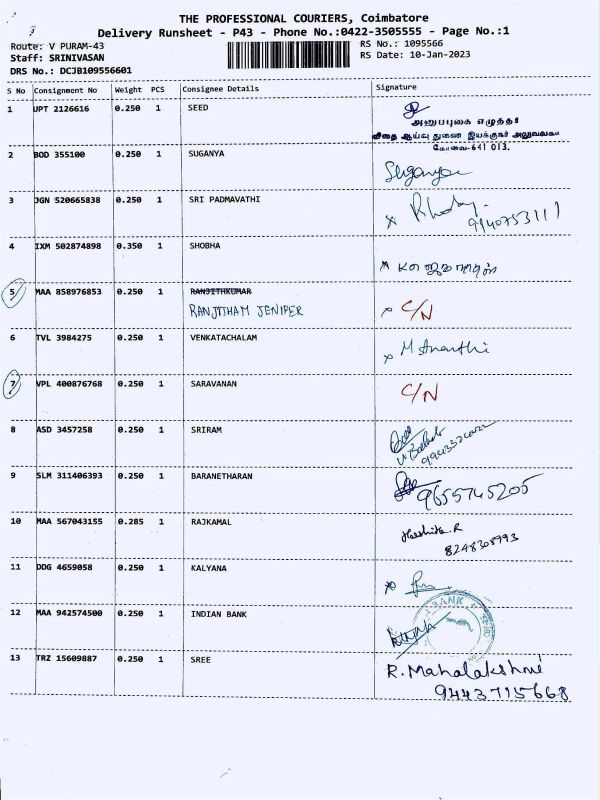 THE PROFESSIONAL COURIERS, Coimbatore
Delivery Runsheet - P43 - Phone No.:0422-3505555 - Page No.:1
Route: V PURAM-43
RS No.: 1095566
Staff: SRINIVASAN
RS Date: 10-Jan-2023
DRS No.: DCJB109556601
S No Consignment No Weight PCS Consignee Details Signature
1 UPT 2126616 0.250 1 SEED
அனுப்புகை எழுத்தர்
விதை ஆய்வு துணை இயக்குநர் அலுவலகம்
கோவை-641 013.
2 BOD 355100 0.250 1 SUGANYA Suganya
3 JGN 520665838 0.250 1 SRI PADMAVATHI
9940753111
4 IXM 502874898 0.350 1 SHOBHA
5 MAA 858976853 0.250 1 RANJITHKUMAR
RANJITHAM JENIPER C/N
6 TVL 3984275 0.250 1 VENKATACHALAM M Ananthi
7 VPL 400876768 0.250 1 SARAVANAN C/N
8 ASD 3457258 0.250 1 SRIRAM
9 SLM 311406393 0.250 1 BARANETHARAN 9655745205
10 MAA 567043155 0.285 1 RAJKAMAL Harshita.R
8248308993
11 DDG 4659058 0.250 1 KALYANA
12 MAA 942574500 0.250 1 INDIAN BANK BANK
13 TRZ 15609887 0.250 1 SREE R. Mahalakshmi
9443715668